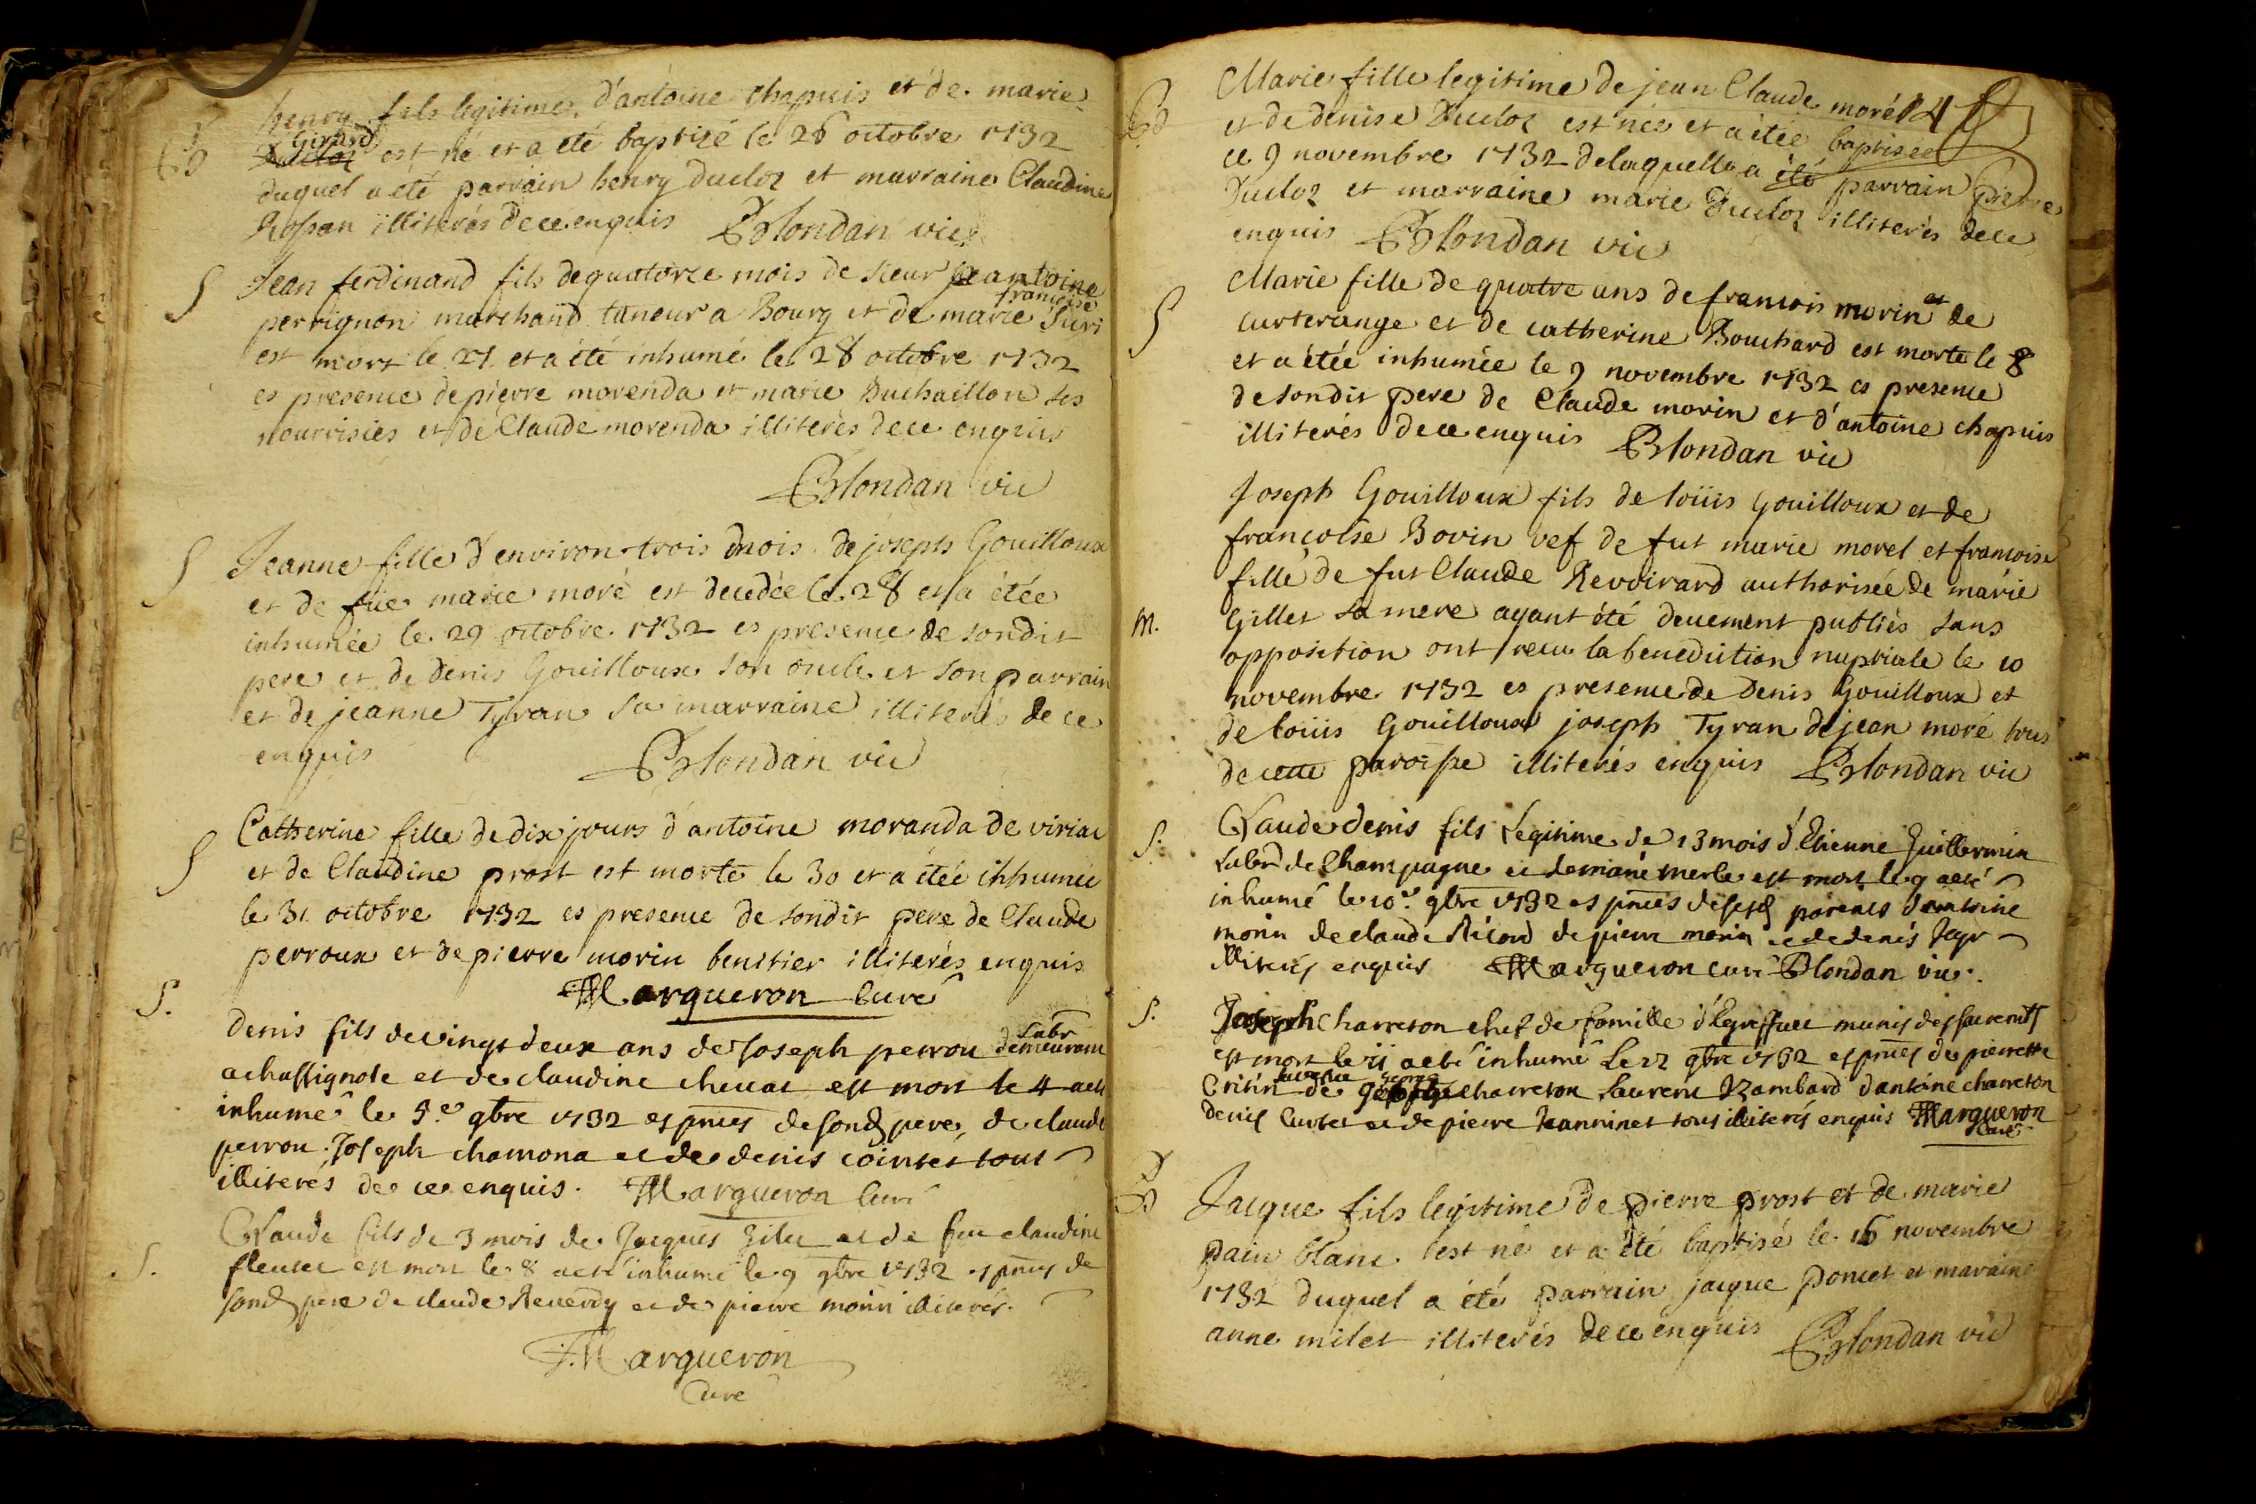 B
henry fils legitime d'antoine chapuis et de marie
Girard
Ducloz est né et a été baptizé le 26 octobre 1732
duquel a été parrain henry Ducloz et marraine Claudine
Rossan illiterés de ce enquis Blondan vic
S
Jean ferdinand fils de quatorze mois de sieur jeantoine
francoise
perrignon marchand taneur a Bourg et de marie
est mort le 27 et a été inhumé le 28 octobre 1732
es presence de pierre morenda et marie Buchaillon ses
nourrisiés et de Claude morenda illiterés de ce enquis
Blondan vic
S
Jeanne fille d'environ trois mois de joseph Gouilloux
et de füe marie moré est decedée le 28 et a étée
inhumée le 29 octobre 1732 es presence de sondit
pere et de Denis Gouilloux son oncle et son parrain
et de jeanne Tyran sa marraine illiterés de ce
enquis Blondan vic
S
Catherine fille de dix jours d'antoine moranda de viriat
et de Claudine prost est morte le 30 et a étée inhumée
le 31 octobre 1732 es presence de sondit pere de Claude
perroux et de pierre morin benitier illiterés enquis
Margueron curé
S.
Denis fils de vingt deux ans de Joseph perrou labr
demeurant
a chassignole et de claudine chevat est mort le 4 aeté
inhumé le 5e 9bre 1732 es pnces de sond pere, de claude
perrou, Joseph chamona et de denis cointet tous
illiterés de ce enquis. Margueron curé
S.
Claude fils de 3 mois de Jacques et de feu claudine
est mort le 8 aeté inhumé le 9 9bre 1732 es pnces de
sond pere de claude Reverdy et de pierre morin illiterés.
Margueron
Curé
B
Marie fille legitime de jean Claude moré 14
et de denise Ducloz est née et a étée baptisée
le 9 novembre 1732 de laquelle a été parrain pierre
Ducloz et marraine marie Ducloz illiterés de ce
enquis Blondan vic
S
Marie fille de quatre ans de francois morin et de
curterange et de catherine Bouchard est morte le 8
et a étée inhumée le 9 novembre 1732 es presence
de sondit pere de Claude morin et d'antoine chapuis
illiterés de ce enquis Blondan vic
M.
Joseph Gouilloux fils de loüis Gouilloux et de
francoise Bovin vef de fut marie morel et francoise
fille de fut Claude Revoirard authorisée de marie
Gillet sa mere ayant été deuement publiés sans
opposition ont recu la benediction nuptiale le 10
novembre 1732 es presence de Denis Gouilloux et
de loüis Gouilloux joseph Tyran de jean moré tous
de cette paroisse illiterés enquis Blondan vic
S.
Claude denis fils Legitime de 13 mois d'Etienne Guillermin
labr de Champagne et de marie merle est mort le 9 aeté
inhumé le 10e 9bre 1732 es pnces de sesd parents d'antoine
morin de claude Ricord de pierre morin et de denis
illiterés enquis Margueron curé Blondan vic.
S.
Joseph Charreton chef de famille munis des sacremts
est mort le 11 aeté inhumé le 12 9bre 1732 es pnces de pierrette
sa veuve george
de george charreton laurent d'antoine charreton
denis curtet et de pierre Jeanninet tous illiterés enquis Margueron
Curé
B
Jacque fils legitime de pierre prost et de marie
pain blanc est né et a été baptisé le 16 novembre
1732 duquel a été parrain jacque poncet et maraine
anne milet illiterés de ce enquis Blondan vic